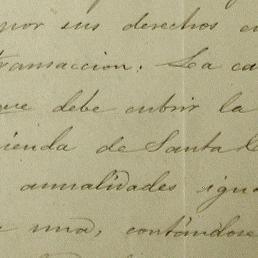 por sus derechos en
transaccion. La ca
que debe cubrir la
ienda de Santa
anualidades igua
una, contándose